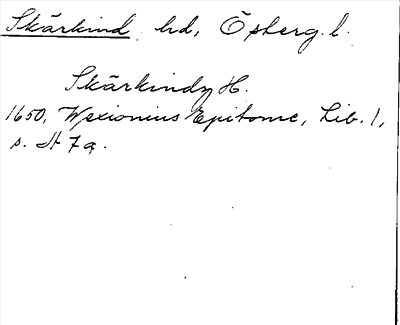 Skärkind hd, Östberg. l.
Skärkindz H.
1650, Wexionius Epitome, Lib. 1,
s. H 7 a.